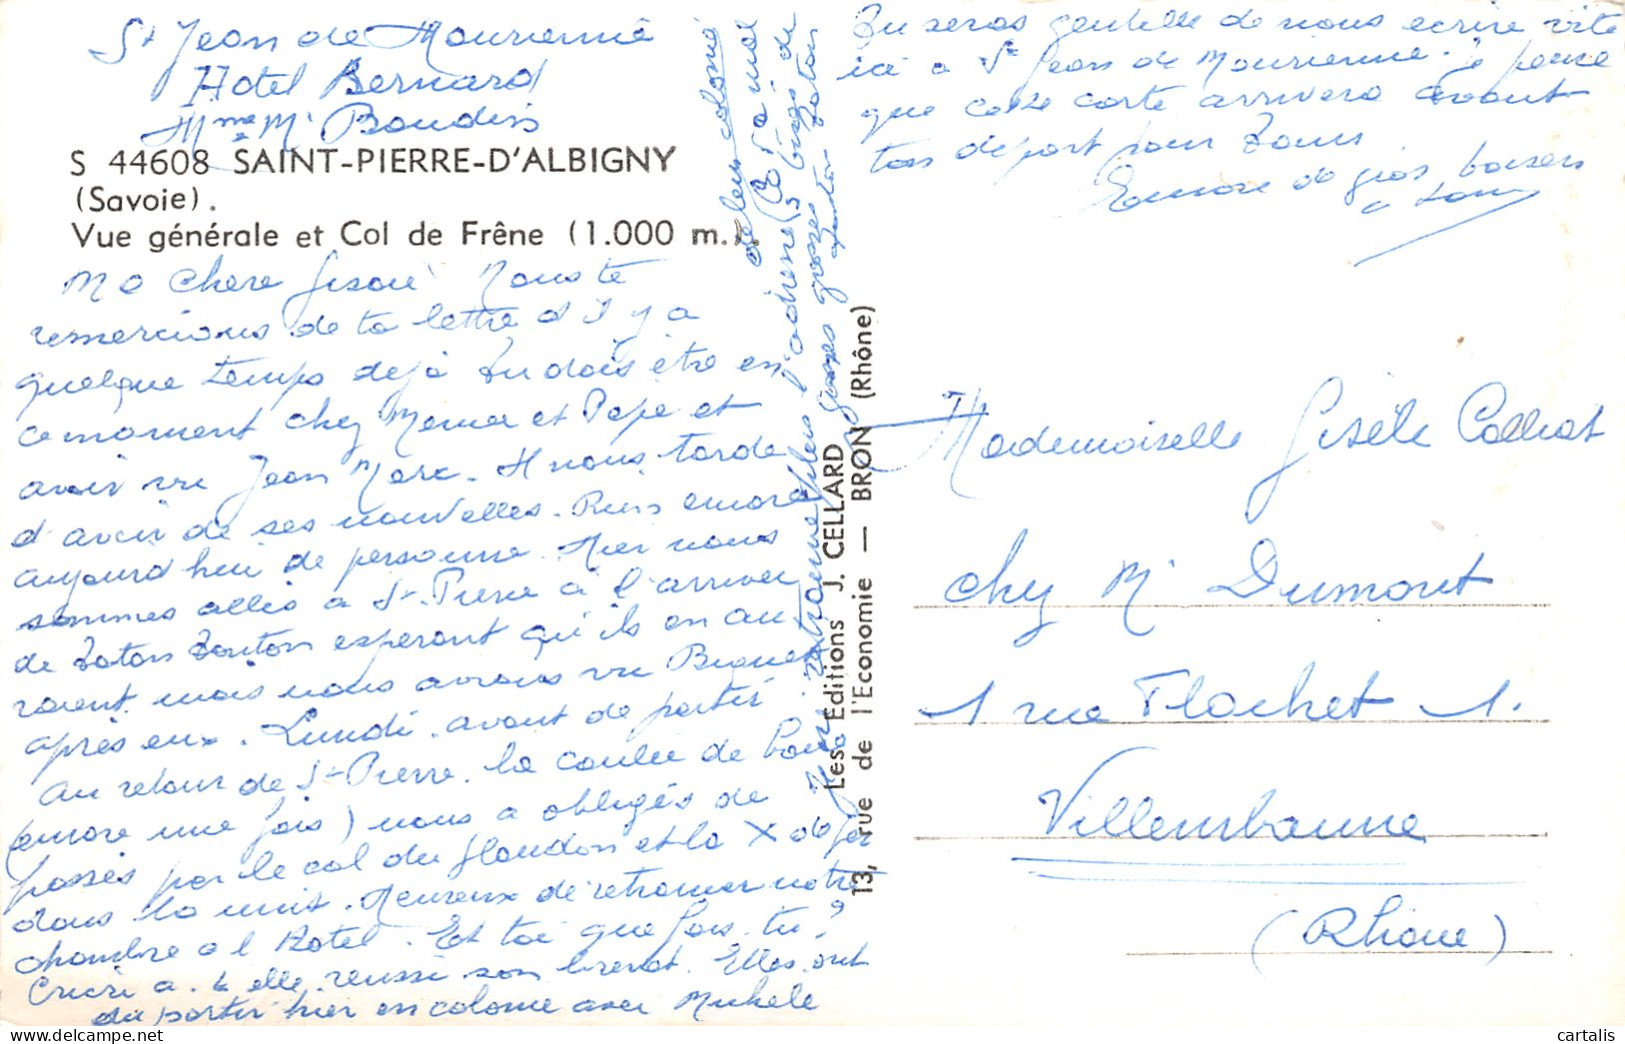 St Jean de Maurienne
Hotel Bernard
Mme Mr Baudin
S 44608 SAINT-PIERRE-D'ALBIGNY
(Savoie).
Vue générale et Col de Frêne (1.000 m.)
Ma chere Gisèle Nous te
remercions de ta lettre d'il y a
quelque temps dejà tu dois être en
ce moment chez Memee et Pepe et
avoir vu Jean Marc. Il nous tarde
d'avoir de ses nouvelles. Rien encore
aujourd hui de personne. Hier nous
sommes allés à St-Pierre à l'arrivée
de Taton Tonton esperant qu'ils en au
raient mais nous avions vu
après eux. Lundi avant de partir
Au retour de St-Pierre. la coulée de boue
(encore une fois) nous a obligés de
passer par le col du glandon et la X de fer
dans la nuit. Heureux de retrouver notre
chambre a l Hotel. Et toi que fais-tu?
Cricri a-t-elle reussi son brevet. Elles ont
du partir hier en colonie avec Michele
de leur colonie
Les Editions J. CELLARD
13, rue de l'Economie — BRON (Rhône)
Tu seras gentille de nous ecrire vite
ici a St Jean de Maurienne. je pense
que cette carte arrivera avant
ton départ pour
Encore de gros baisers
Mademoiselle Gisèle Colliat
chez Mr Dumont
1 rue Flachet 1.
Villeurbanne
(Rhône)
cartalis